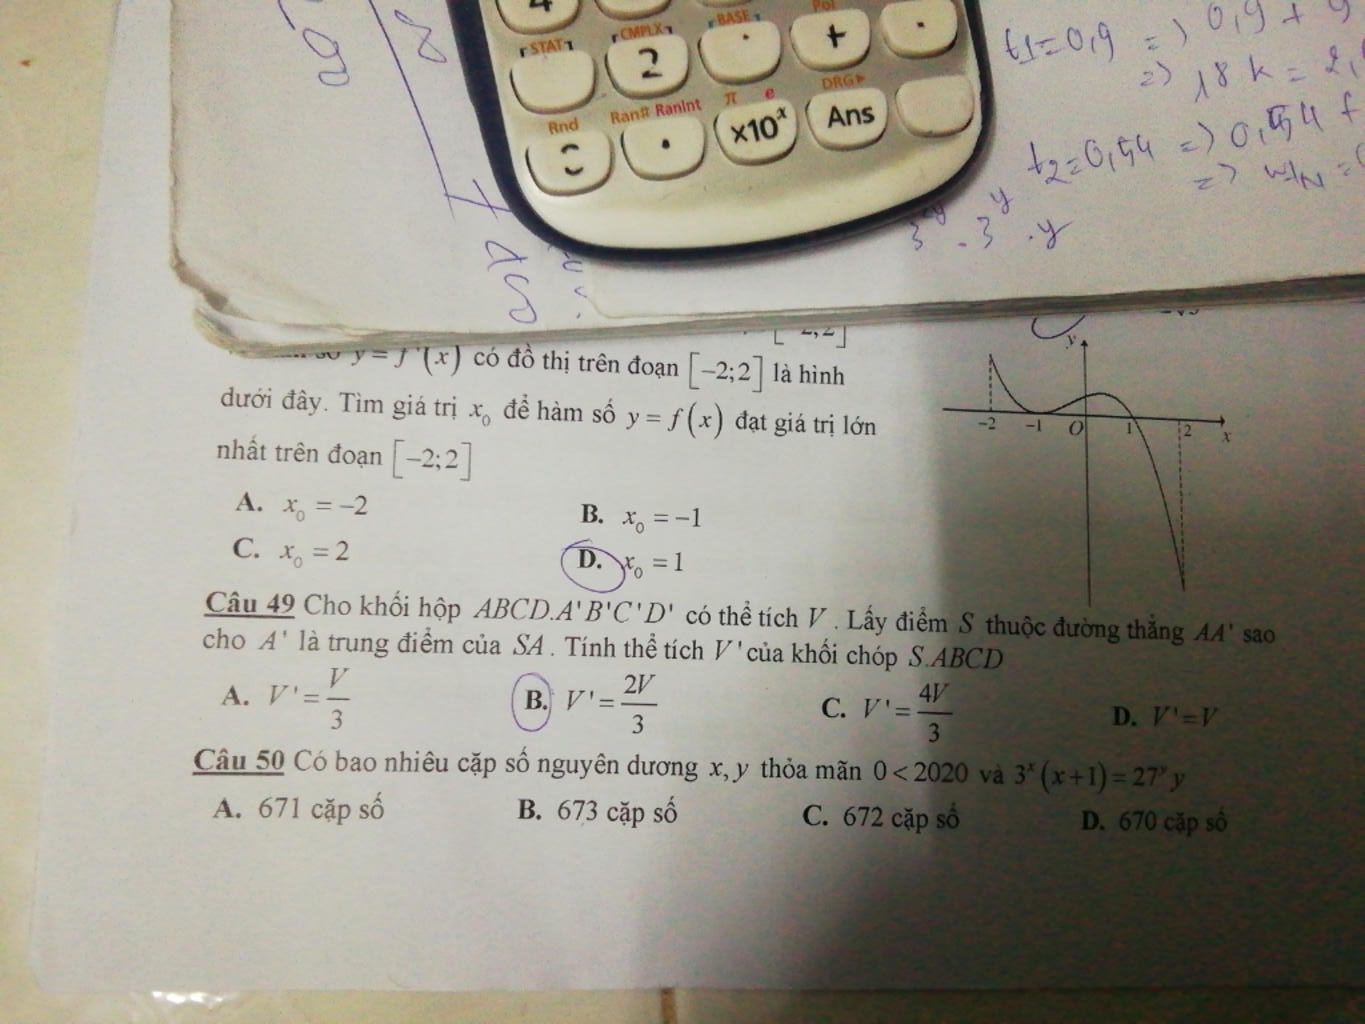 STAT CMPLX BASE Pol
2 . + .
Rnd Ran# RanInt π e DRG▶
. ×10ˣ Ans
t1=0,9 => 0,9 +
=> 18 k = 2,
t2=0,54 => 0,54
3^y . 3^y . y
y = f '(x) có đồ thị trên đoạn [−2;2] là hình
dưới đây. Tìm giá trị x₀ để hàm số y = f(x) đạt giá trị lớn
nhất trên đoạn [−2;2]
A. x₀ = −2 B. x₀ = −1
C. x₀ = 2 D. x₀ = 1
y
−2 −1 O 1 2 x
Câu 49 Cho khối hộp ABCD.A'B'C'D' có thể tích V . Lấy điểm S thuộc đường thẳng AA' sao
cho A' là trung điểm của SA . Tính thể tích V' của khối chóp S.ABCD
A. V' = V/3 B. V' = 2V/3 C. V' = 4V/3 D. V' = V
Câu 50 Có bao nhiêu cặp số nguyên dương x, y thỏa mãn 0 < 2020 và 3ˣ(x+1) = 27ʸ y
A. 671 cặp số B. 673 cặp số C. 672 cặp số D. 670 cặp số